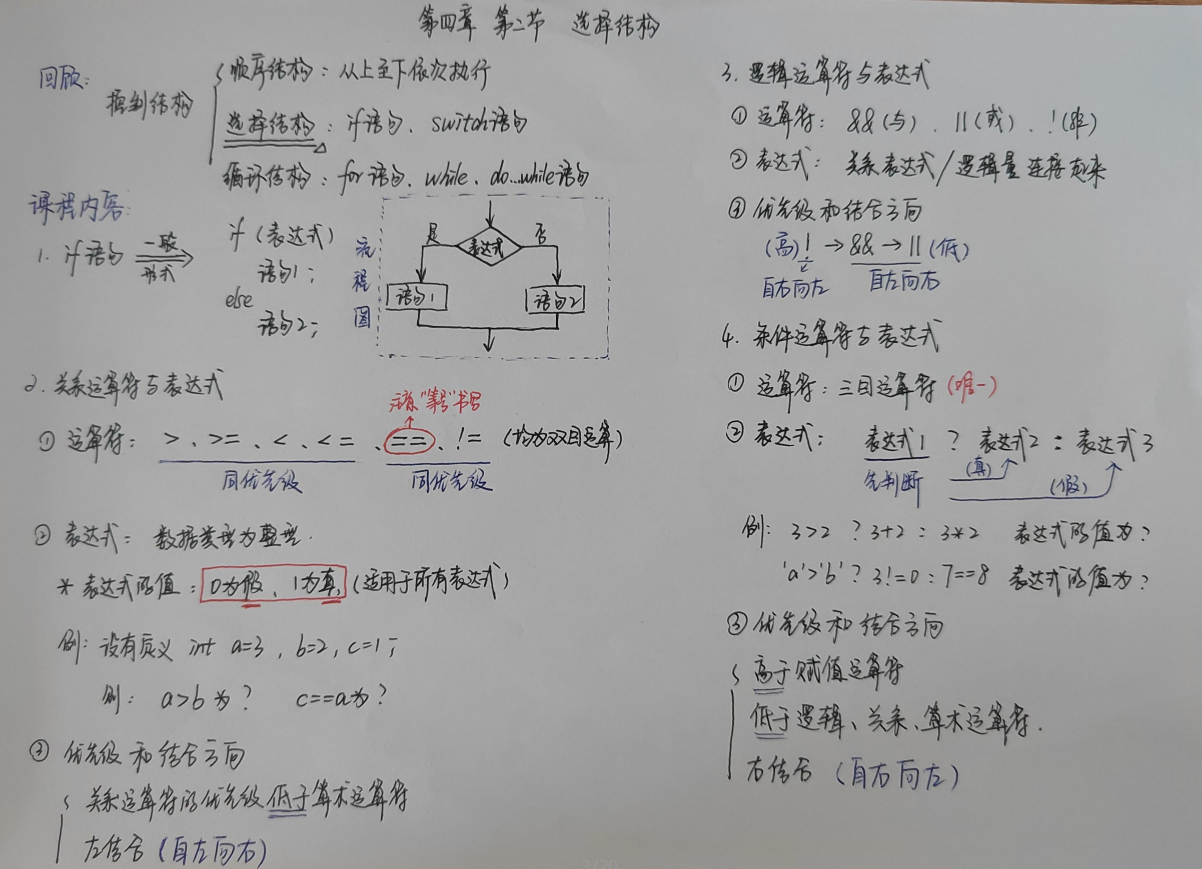 第四章 第二节 选择结构
回顾:
控制结构
顺序结构: 从上至下依次执行
选择结构: if语句、switch语句
循环结构: for语句、while、do...while语句
课程内容:
1. if语句 一般形式
if (表达式)
语句1;
else
语句2;
流程图
表达式
是
否
语句1
语句2
2. 关系运算符与表达式
注意"等号"书写
① 运算符: >、>=、<、<=、==、!= (均为双目运算)
同优先级
同优先级
② 表达式: 数据类型为整型.
* 表达式的值: 0为假、1为真, (适用于所有表达式)
例: 设有定义 int a=3, b=2, c=1;
例: a>b 为? c==a为?
③ 优先级和结合方向
关系运算符的优先级低于算术运算符
左结合 (自左向右)
3. 逻辑运算符与表达式
① 运算符: &&(与)、||(或)、!(非)
② 表达式: 关系表达式/逻辑量连接起来
③ 优先级和结合方向
(高) ! → && → || (低)
自右向左 自左向右
4. 条件运算符与表达式
① 运算符: 三目运算符 (唯一)
② 表达式: 表达式1 ? 表达式2 : 表达式3
先判断 (真) (假)
例: 3>2 ? 3+2 : 3*2 表达式的值为?
'a'>'b' ? 3!=0 : 7==8 表达式的值为?
③ 优先级和结合方向
高于赋值运算符
低于逻辑、关系、算术运算符.
右结合 (自右向左)